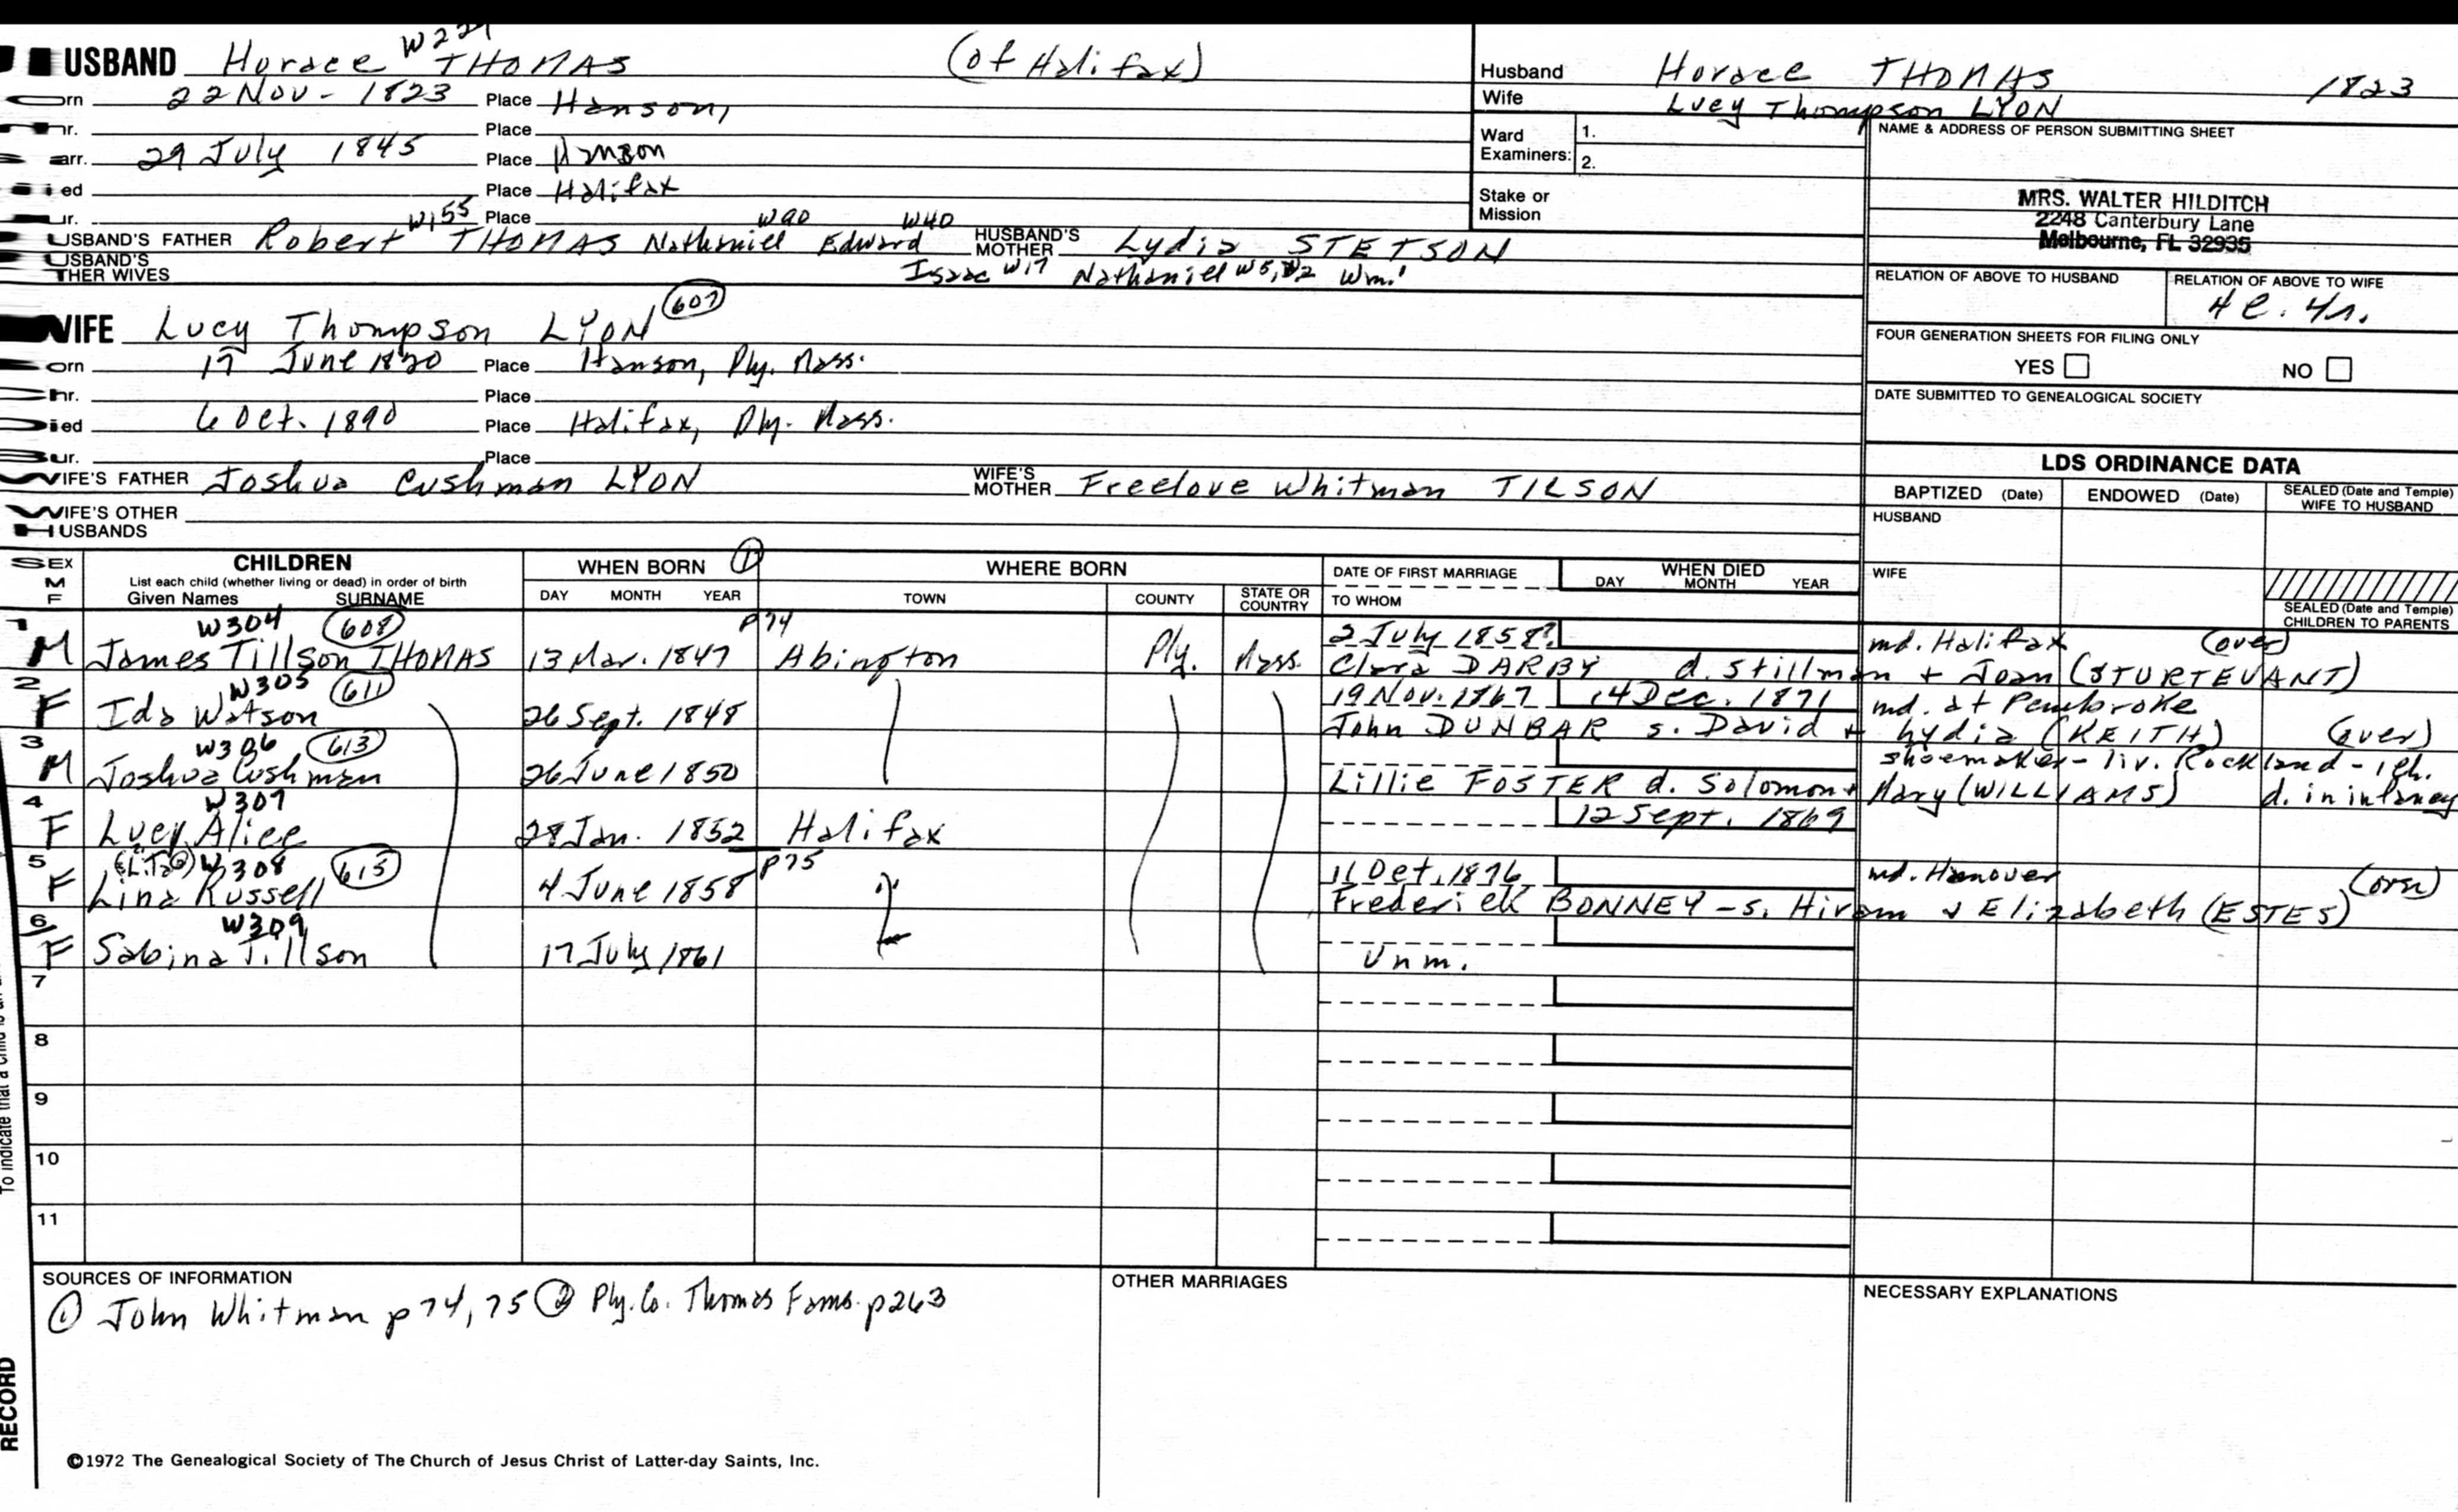 W229
USBAND Horace THOMAS (of Halifax)
orn 22 Nov - 1823 Place Hanson,
hr. Place
arr. 29 July 1845 Place Hanson
ied Place Halifax
ur. Place
W155 W90 W40
USBAND'S FATHER Robert THOMAS Nathaniel Edward HUSBAND'S MOTHER Lydia STETSON
USBAND'S THER WIVES Isaac W17 Nathaniel W5, W2 Wm.1
Husband Horace THOMAS 1823
Wife Lucy Thompson LYON
Ward Examiners: 1.
2.
Stake or Mission
NAME & ADDRESS OF PERSON SUBMITTING SHEET
MRS. WALTER HILDITCH
2248 Canterbury Lane
Melbourne, FL 32935
RELATION OF ABOVE TO HUSBAND RELATION OF ABOVE TO WIFE
4C. 4r.
FOUR GENERATION SHEETS FOR FILING ONLY
YES NO
DATE SUBMITTED TO GENEALOGICAL SOCIETY
WIFE Lucy Thompson LYON 607
orn 17 June 1820 Place Hanson, Ply. Mass.
hr. Place
Died 6 Oct. 1890 Place Halifax, Ply. Mass.
Bur. Place
WIFE'S FATHER Joshua Cushman LYON WIFE'S MOTHER Freelove Whitman TILSON
WIFE'S OTHER HUSBANDS
LDS ORDINANCE DATA
BAPTIZED (Date) ENDOWED (Date) SEALED (Date and Temple) WIFE TO HUSBAND
HUSBAND
WIFE
SEALED (Date and Temple) CHILDREN TO PARENTS
SEX M F CHILDREN List each child (whether living or dead) in order of birth Given Names SURNAME
WHEN BORN 1 DAY MONTH YEAR
WHERE BORN TOWN COUNTY STATE OR COUNTRY
DATE OF FIRST MARRIAGE TO WHOM
WHEN DIED DAY MONTH YEAR
1 W304 608 P74 2 July 1858? md. Halifax (over)
M James Tillson THOMAS 13 Mar. 1847 Abington Ply. Mass. Clara DARBY d. Stillman + Joan (STURTEVANT)
2 W305 611 19 Nov. 1867 14 Dec. 1871 md. at Pembroke
F Ida Watson 26 Sept. 1848 John DUNBAR s. David + Lydia (KEITH) (over)
3 W306 613 shoemaker - liv. Rockland - 1 ch.
M Joshua Cushman 26 June 1850 Lillie FOSTER d. Solomon + Mary (WILLIAMS) d. in infancy
4 W307 12 Sept. 1869
F Lucy Alice 28 Jan. 1852 Halifax
5 W308 615 P75 11 Oct. 1876 md. Hanover (over)
F Lina Russell 4 June 1858 Frederick BONNEY - s. Hiram & Elizabeth (ESTES)
6 W309
F Sabina Tillson 17 July 1861 Unm.
7
8
9
10
11
SOURCES OF INFORMATION
1 John Whitman p 74, 75 2 Ply. Co. Thomas Fams. p 263
OTHER MARRIAGES
NECESSARY EXPLANATIONS
To indicate that a child is an
RECORD
©1972 The Genealogical Society of The Church of Jesus Christ of Latter-day Saints, Inc.